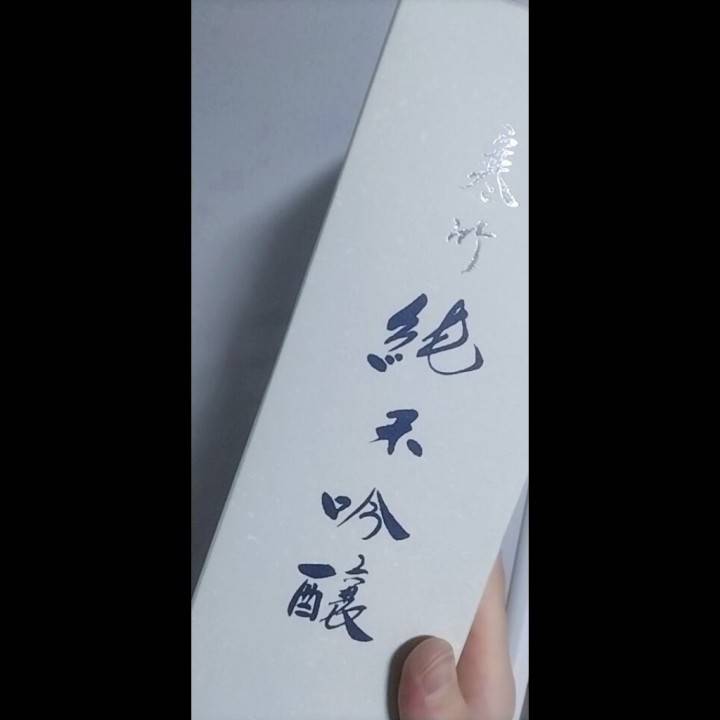 寒竹
純米吟醸